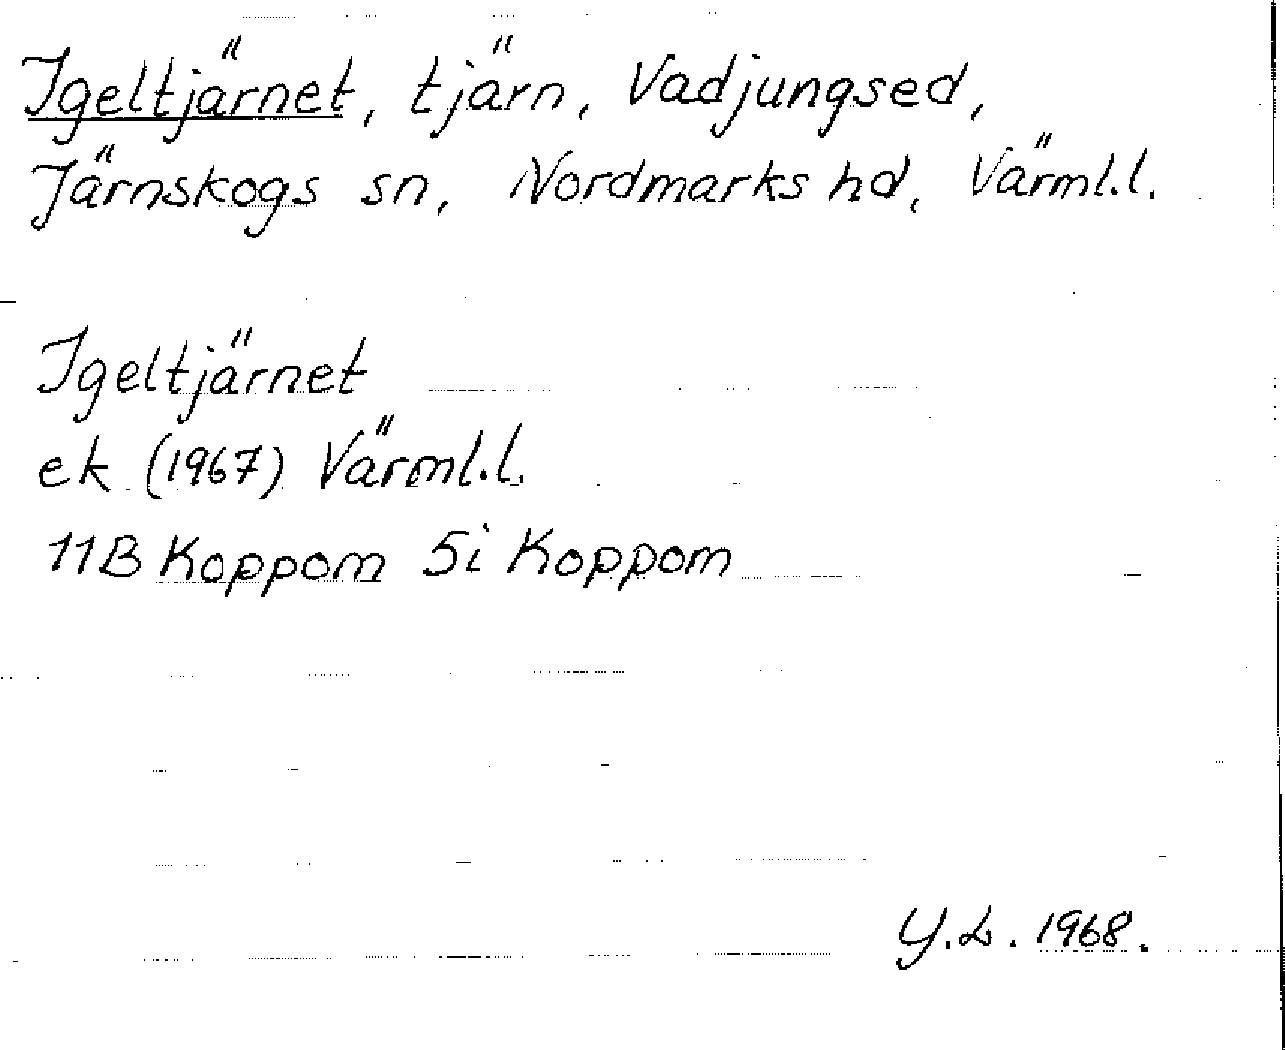 Igeltjärnet, tjärn, Vadjungsed,
Järnskogs sn, Nordmarks hd, Värml.l.
Igeltjärnet
ek (1967) Värml.l.
11B Koppom 5i Koppom
Y.L. 1968.